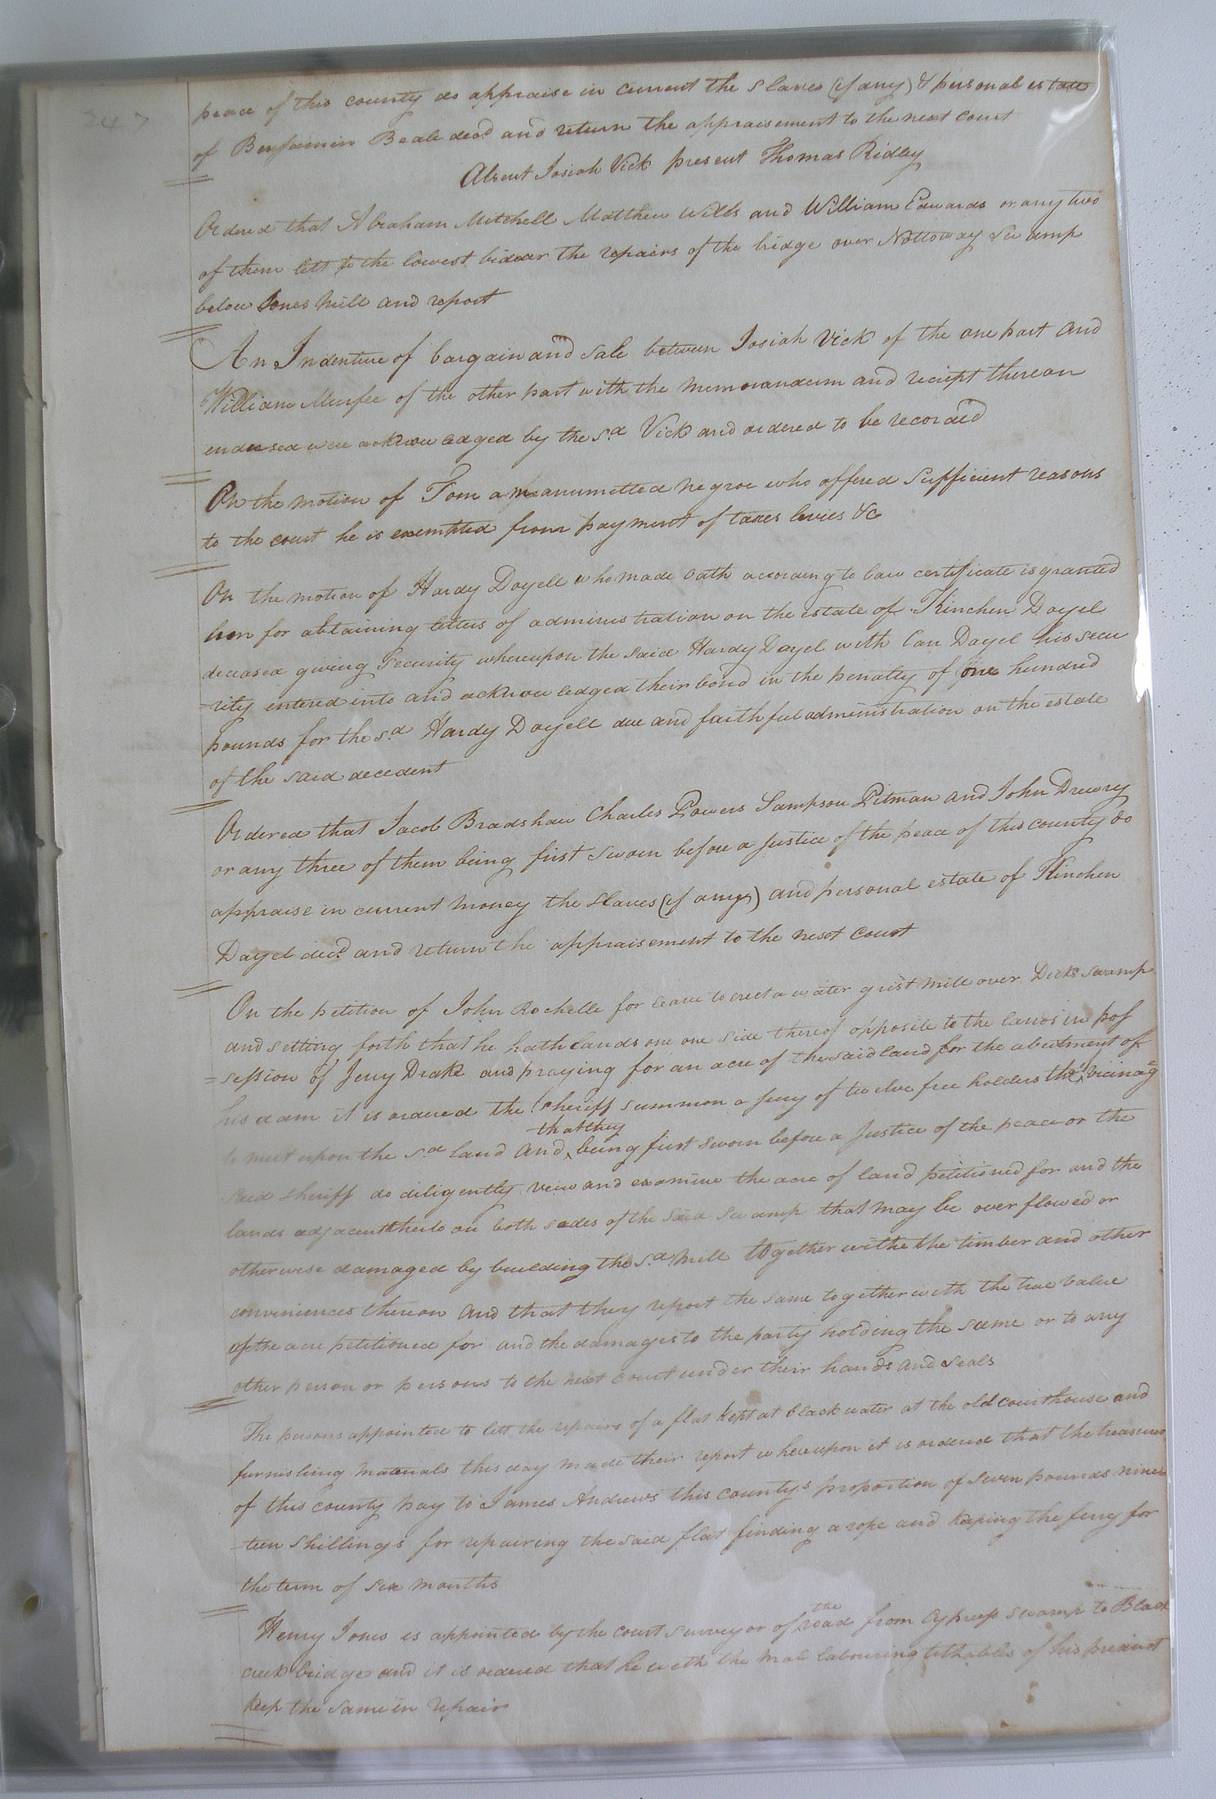 247
peace of this county do appraise in current the slaves (if any) & personal estate
of Benjamin Beale decd. and return the appraisement to the next court
Absent Josiah Vick present Thomas Ridley
Ordered that Abraham Mitchell Matthew Wills and William Edwards or any two
of them lett to the lowest bidder the repairs of the bridge over Nottoway Swamp
below Jones Mill and report
An Indenture of bargain and sale between Josiah Vick of the one part and
William Murfee of the other part with the memorandum and reciept thereon
endorsed were acknowledged by the sd. Vick and ordered to be recorded
On the motion of Tom a manumitted negroe who offered sufficient reasons
to the court he is exempted from payment of taxes levies &c
On the motion of Hardy Doyell who made oath according to law certificate is granted
him for obtaining letters of administration on the estate of Kinchen Doyel
deceased giving security whereupon the said Hardy Doyel with Cau Doyel his secu
-rity entered into and acknowledged their bond in the penalty of one hundred
pounds for the sd. Hardy Doyell due and faithful administration on the estate
of the said decedent
Ordered that Jacob Bradshaw Charles Powers Sampson Pitman and John Drewry
or any three of them being first sworn before a Justice of the peace of this county do
appraise in current money the Slaves (if any) and personal estate of Kinchen
Doyel decd. and return the appraisement to the next Court
On the petition of John Rochelle for leave to erect a water grist mill over Dicks swamp
and setting forth that he hath lands one one side thereof opposite to the lands in pos
=session of Jerry Drake and praying for an acre of the said land for the abutment of
his dam it is ordered the sheriff summon a jury of twelve free holders the vicinage
to meet upon the sd. land and that they being first sworn before a Justice of the peace or the
said sheriff do diligently view and examine the acre of land petitioned for and the
lands adjacent thereto on both sides of the said swamp that may be over flowed or
otherwise damaged by building the sd. Mill together withe the timber and other
conveniences thereon and that they report the same together with the true value
of the acre petitioned for and the damages to the party holding the same or to any
other person or persons to the next Court under their hands and seals
The persons appointed to lett the repairs of a flat kept at black water at the old courthouse and
furnishing materials this day made their report whereupon it is ordered that the treasurer
of this county pay to James Andrews this countys proportion of seven pounds nine
-teen shillings for repairing the said flat finding a rope and keeping the ferry for
the term of six months
Henry Jones is appointed by the court surveyor of the road from Cypress swamp to Black
creek bridge and it is ordered that he with the male labouring tithables of his precinct
keep the same in repair